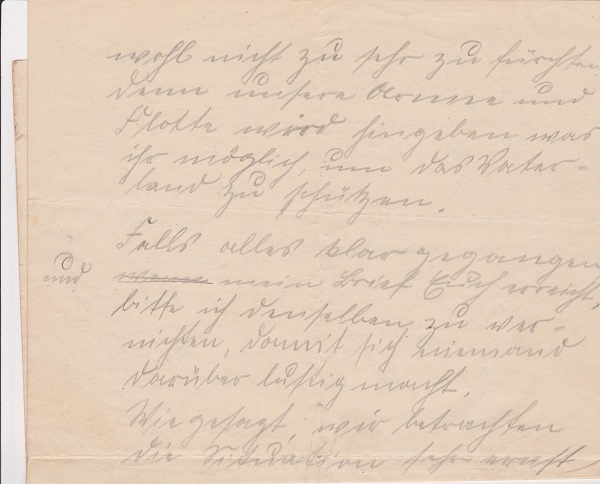 wohl nicht zu sehr zu fürchten
denn unsere Armee und
Flotte wird hingeben was
ihr möglich, um das Vater-
land zu schützen.
Falls alles klar gegangen
und wenn mein Brief Euch erreicht,
bitte ich denselben zu ver-
nichten, damit sich niemand
darüber lustig macht.
Wie gesagt, wir betrachten
die Situation sehr ernst,